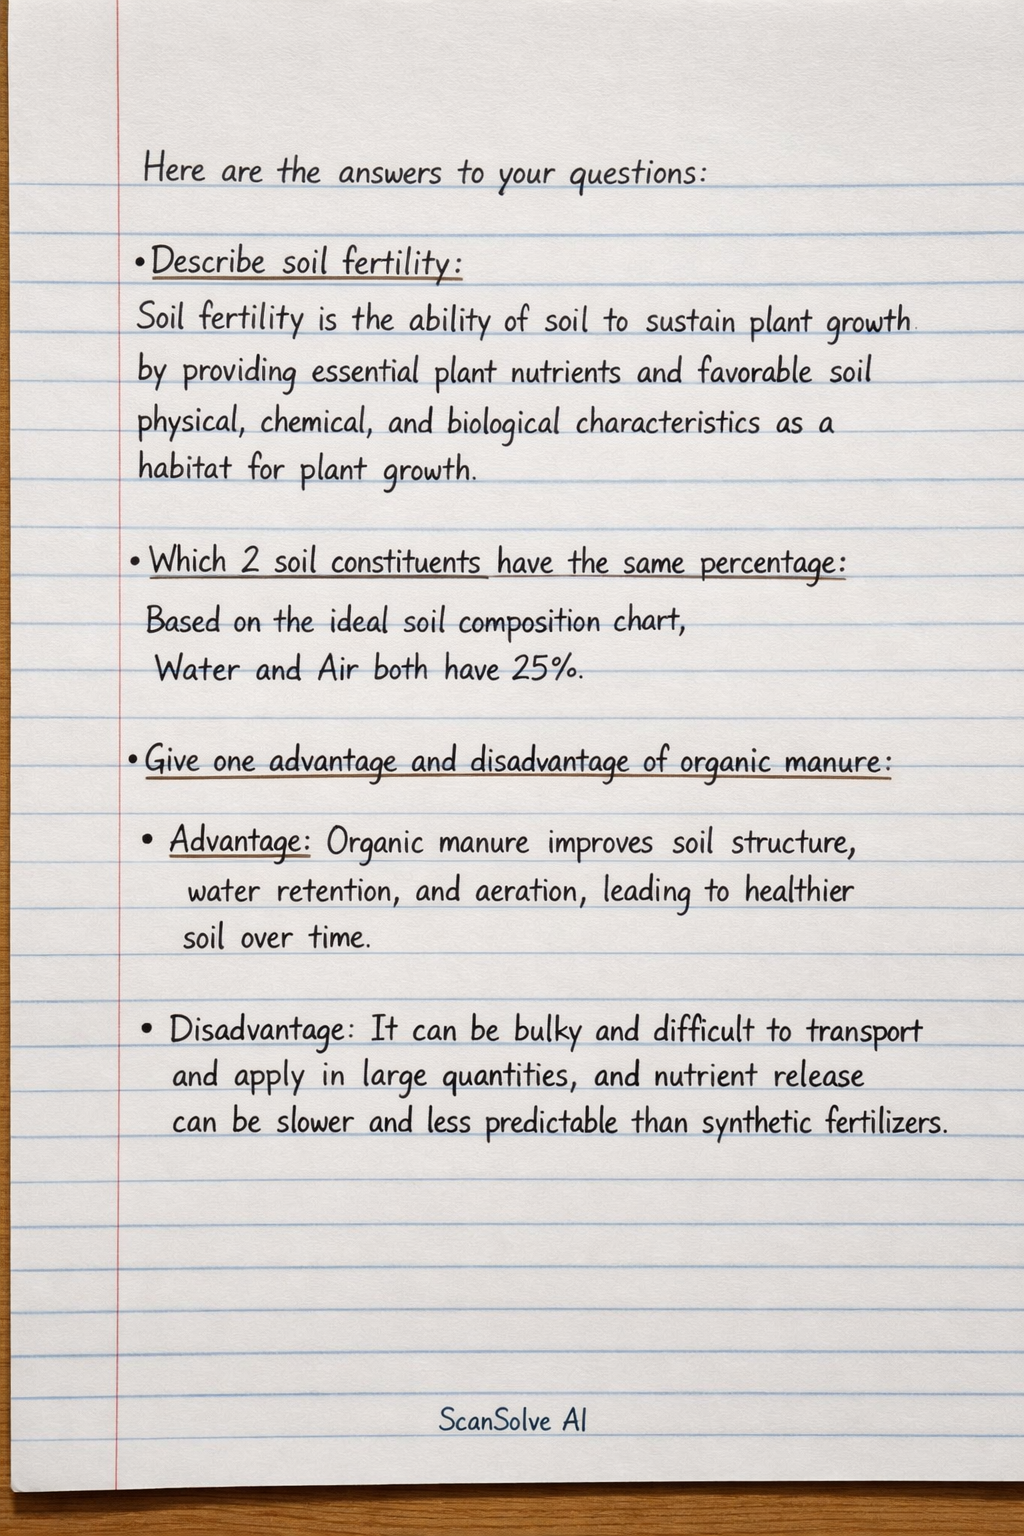 Here are the answers to your questions:
•Describe soil fertility:
Soil fertility is the ability of soil to sustain plant growth
by providing essential plant nutrients and favorable soil
physical, chemical, and biological characteristics as a
habitat for plant growth.
• Which 2 soil constituents have the same percentage:
Based on the ideal soil composition chart,
Water and Air both have 25%.
• Give one advantage and disadvantage of organic manure:
• Advantage: Organic manure improves soil structure,
water retention, and aeration, leading to healthier
soil over time.
• Disadvantage: It can be bulky and difficult to transport
and apply in large quantities, and nutrient release
can be slower and less predictable than synthetic fertilizers.
ScanSolve AI